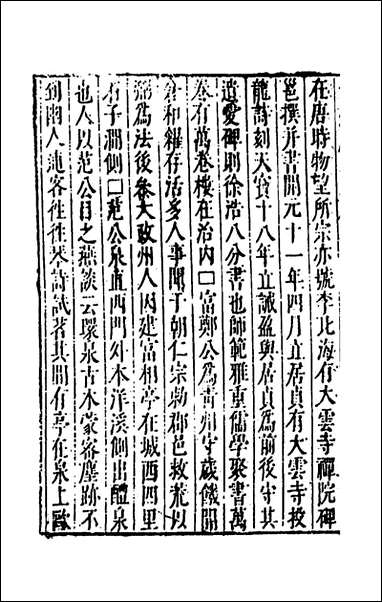 在唐時物望所宗亦號李北海有大雲寺禪院碑
邕撰并書開元十一年四月立居貞有大雲寺投
龍詩刻天寶十八年立誠盈與居貞為前後守其
遺愛碑則徐浩八分書也師範雅重儒學聚書萬
卷有萬卷樓在治內□富鄭公為青州守歲饑開
倉和糴存活多人事聞于朝仁宗勑郡邑救荒以
弼為法後叅大政州人因建富相亭在城西四里
石子澗側□范公泉直西門外本洋溪側出醴泉
也人以范公目之燕談云環泉古木蒙密塵跡不
到幽人逋客徃徃琴詩試茗其間有亭在泉上歐